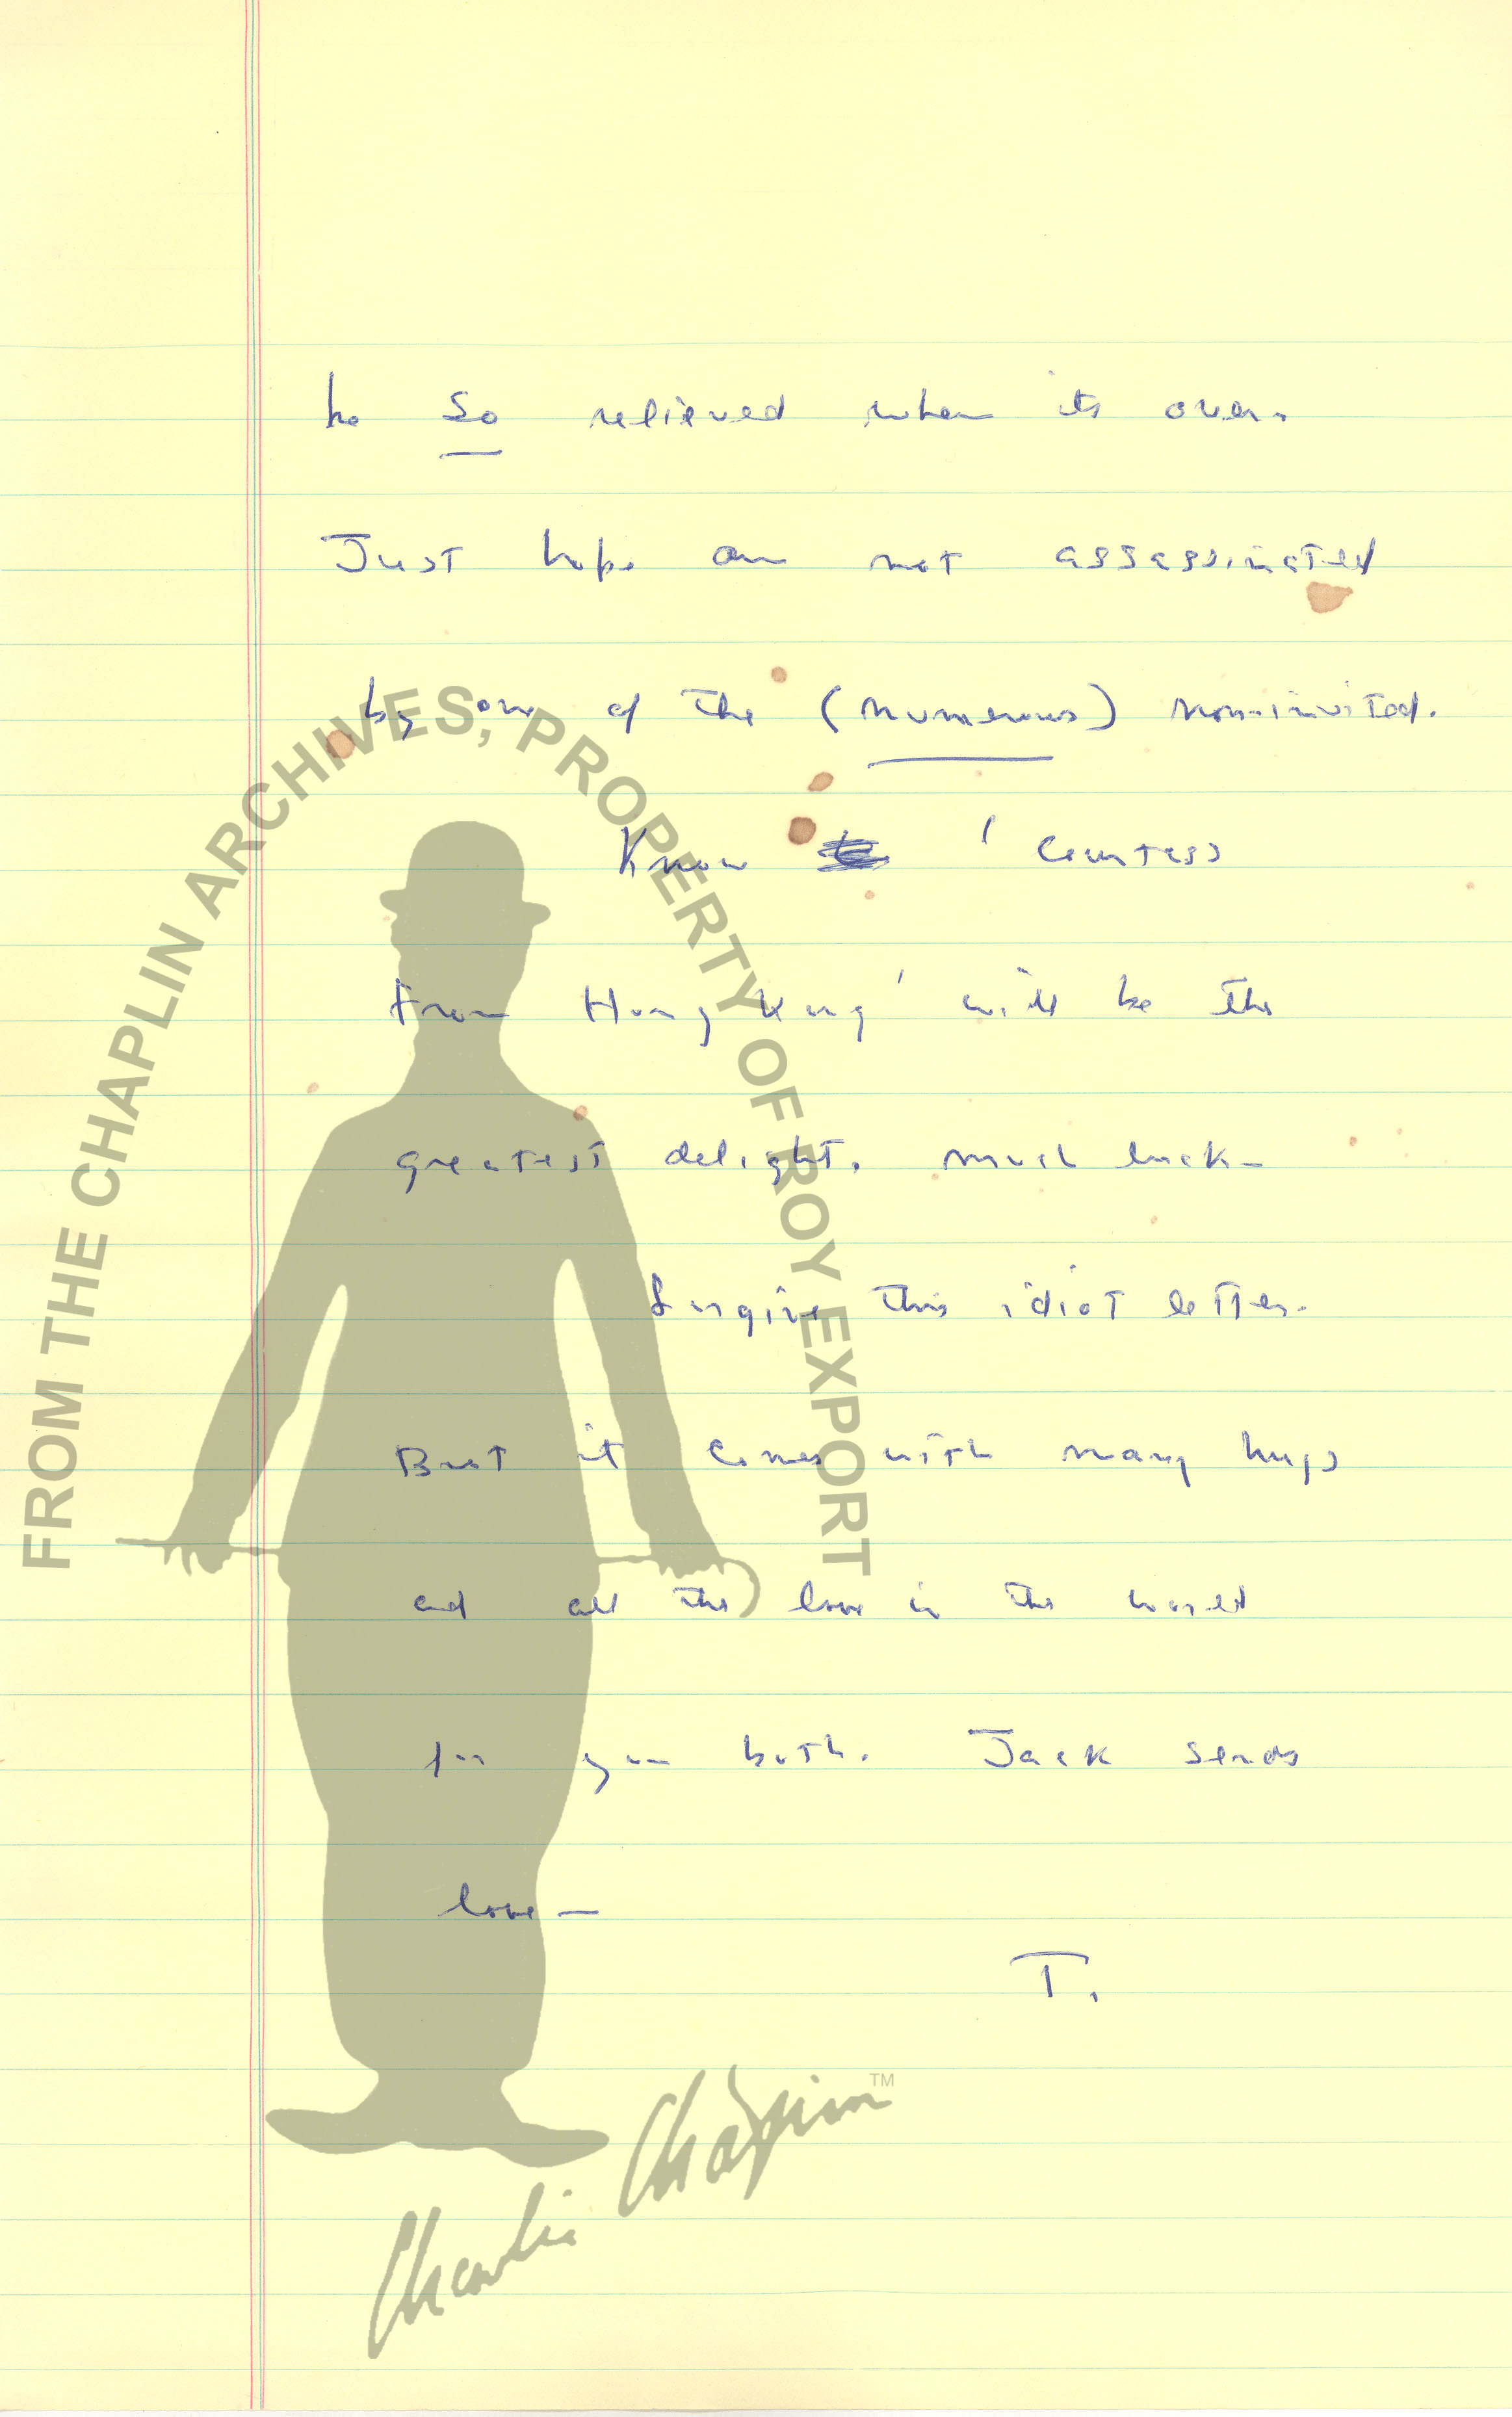 be so relieved when its over.
Just hope am not assassinated
by one of the (numerous) non-invited.
Know 'Countess
from Hong Kong' will be the
greatest delight. Much luck—
Forgive this idiot letter.
But it comes with many hugs
and all the love in the world
for you both. Jack sends
love—
T.
FROM THE CHAPLIN ARCHIVES, PROPERTY OF ROY EXPORT
Charlie Chaplin TM